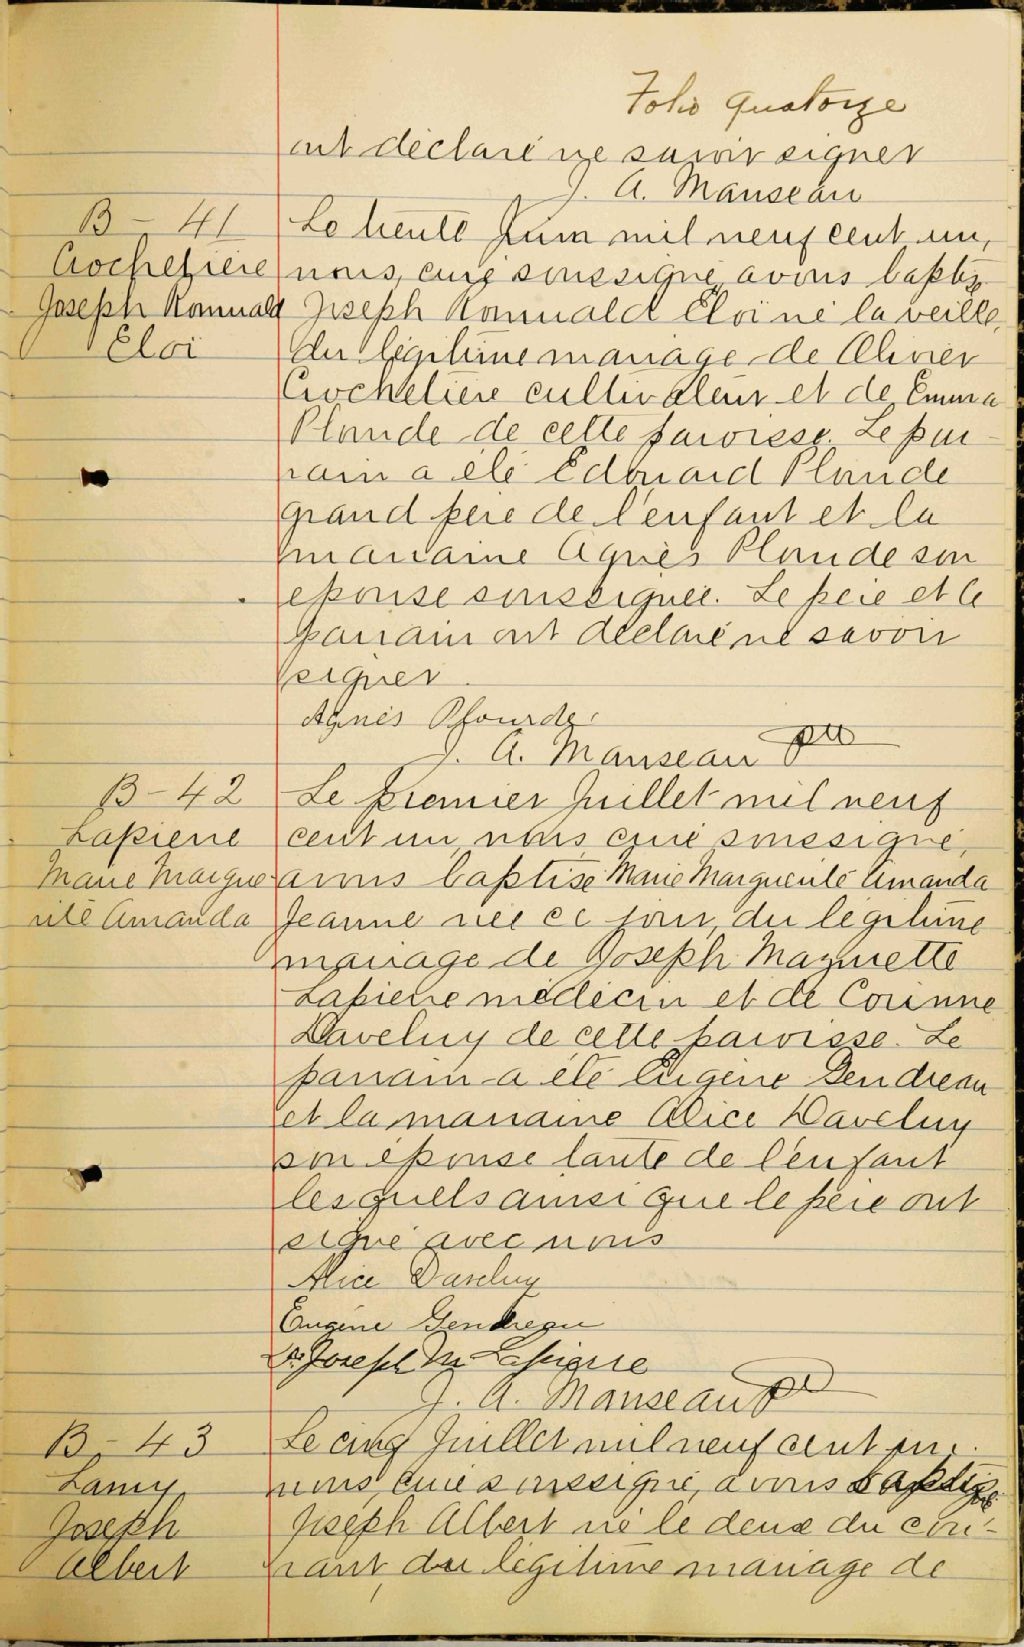 Folio quatorze
ont déclaré ne savoir signer
J. A. Manseau
B - 41
Crochetière
Joseph Romuald
Eloi
Le trente Juin mil neuf cent un,
nous, curé soussigné, avons baptisé
Joseph Romuald Eloi né la veille,
du légitime mariage de Olivier
Crochetière cultivateur et de Emma
Plourde de cette paroisse. Le par-
rain a été Edouard Plourde
grand père de l'enfant et la
marraine Agnès Plourde son
épouse soussignée. Le père et le
parrain ont déclaré ne savoir
signer.
Agnès Plourde
J. A. Manseau ptre
B - 42
Lapierre
Marie Margue
rite Amanda
Le premier Juillet mil neuf
cent un, nous curé soussigné,
avons baptisé Marie Marguerite Amanda
Jeanne née ce jour, du légitime
mariage de Joseph Mazurette
Lapierre médecin et de Corinne
Daveluy de cette paroisse. Le
parrain a été Eugène Gendreau
et la marraine Alice Daveluy
son épouse tante de l'enfant
lesquels ainsi que le père ont
signé avec nous
Alice Daveluy
Eugène Gendreau
Dr Joseph M Lapierre
J. A. Manseau Ptre
B - 43
Lamy
Joseph
Albert
Le cinq Juillet mil neuf cent un,
nous, curé soussigné, avons baptisé
Joseph Albert né le deux du cou-
rant, du légitime mariage de